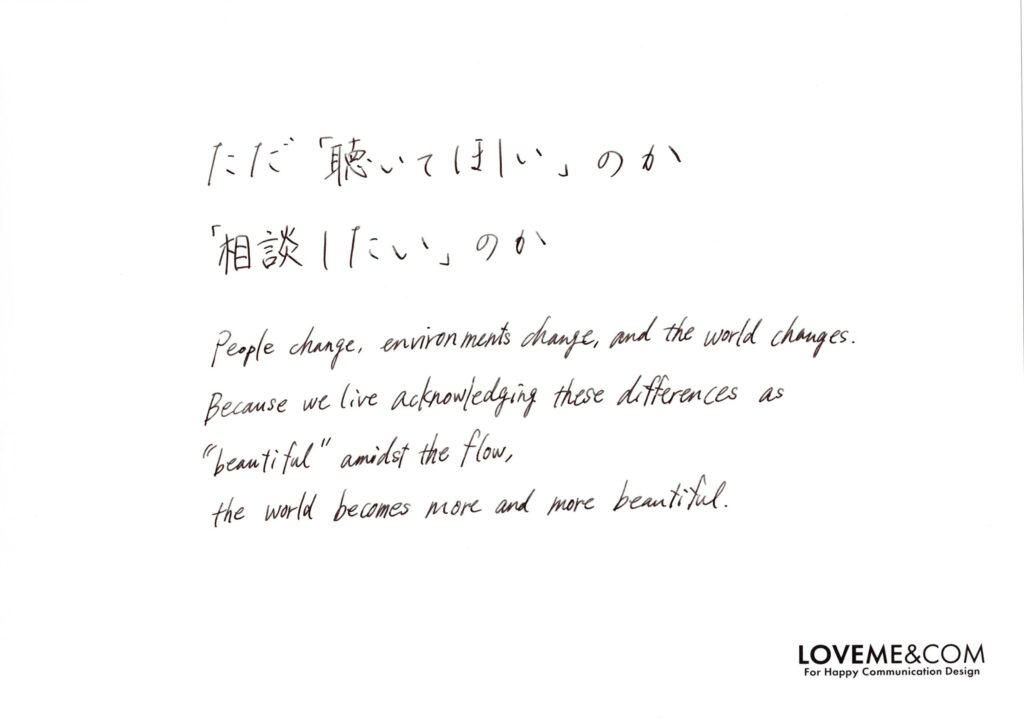 ただ「聴いてほしい」のか
「相談したい」のか
People change, environments change, and the world changes.
Because we live acknowledging these differences as
"beautiful" amidst the flow,
the world becomes more and more beautiful.
LOVEME&COM
For Happy Communication Design